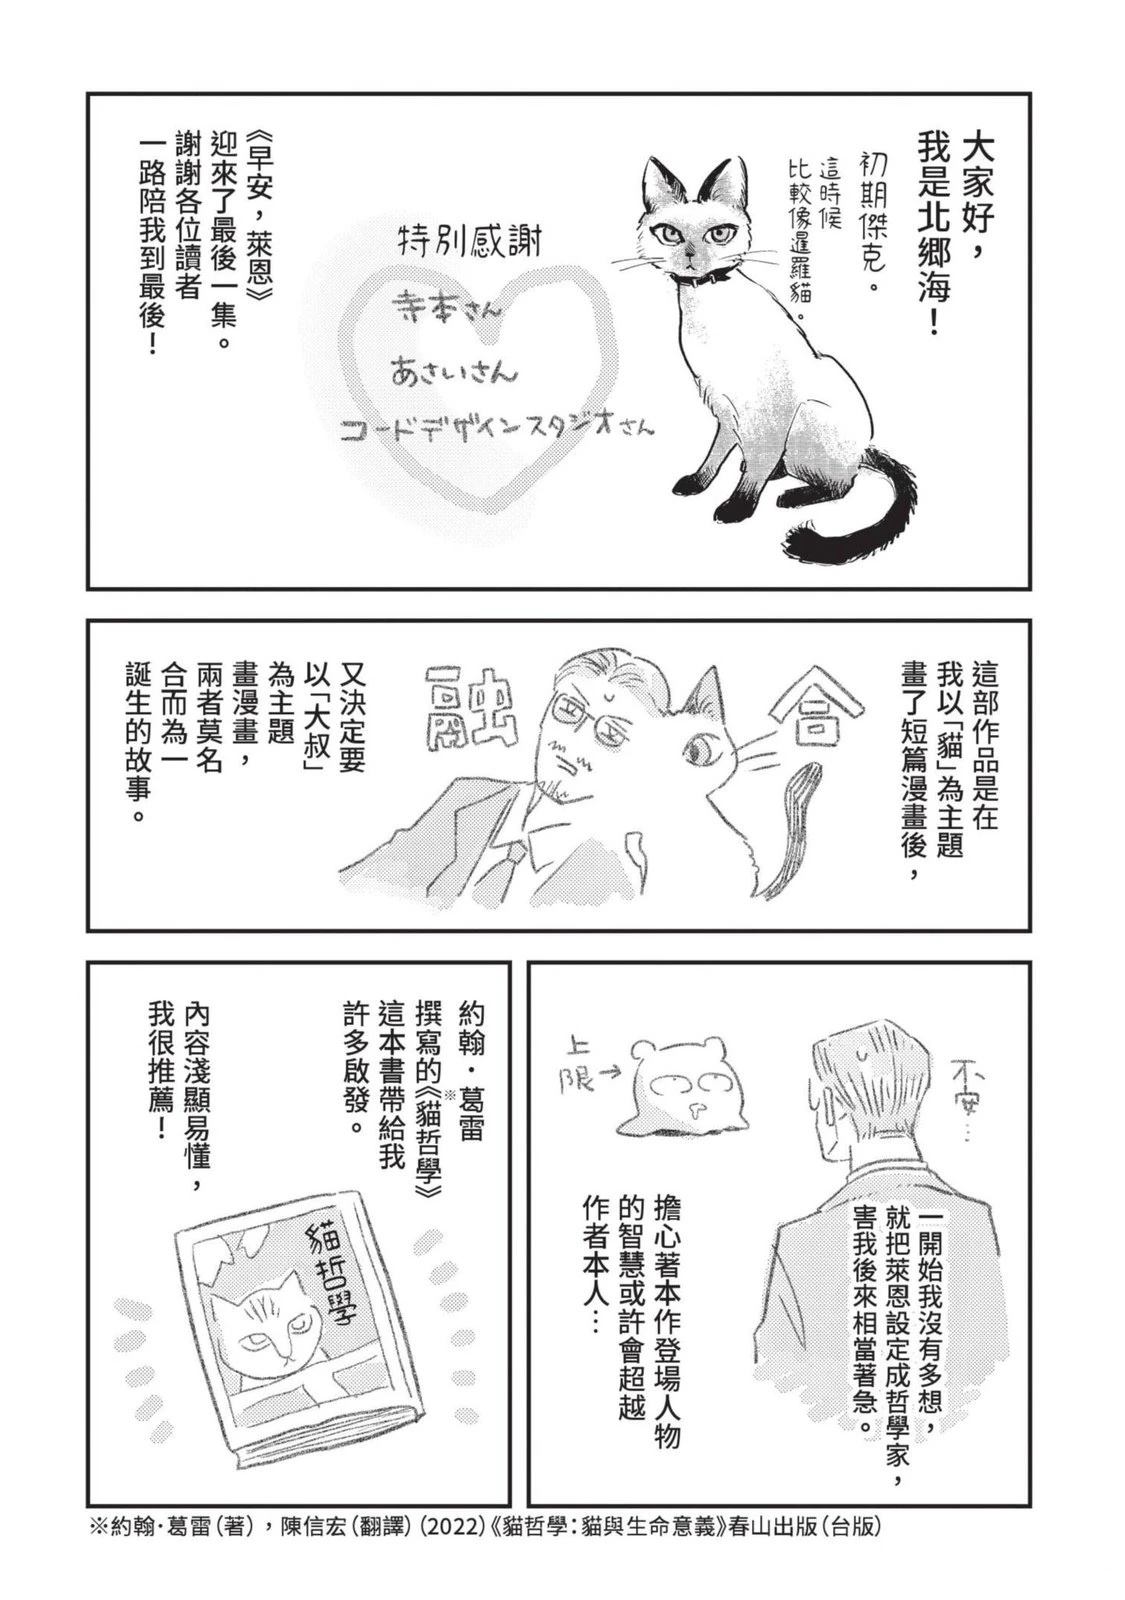 大家好，
我是北鄉海！
初期傑克。
這時候
比較像暹羅貓。
特別感謝
寺本さん
あさいさん
コードデザインスタジオさん
《早安，萊恩》
迎來了最後一集。
謝謝各位讀者
一路陪我到最後！
這部作品是在
我以「貓」為主題
畫了短篇漫畫後，
融合
又決定要
以「大叔」
為主題
畫漫畫，
兩者莫名
合而為一
誕生的故事。
不安…
一開始我沒有多想，
就把萊恩設定成哲學家，
害我後來相當著急。
上限→
擔心著本作登場人物
的智慧或許會超越
作者本人…
約翰・葛雷
撰寫的《貓哲學》※
這本書帶給我
許多啟發。
內容淺顯易懂，
我很推薦！
貓哲學
※約翰・葛雷（著），陳信宏（翻譯）（2022）《貓哲學：貓與生命意義》春山出版（台版）